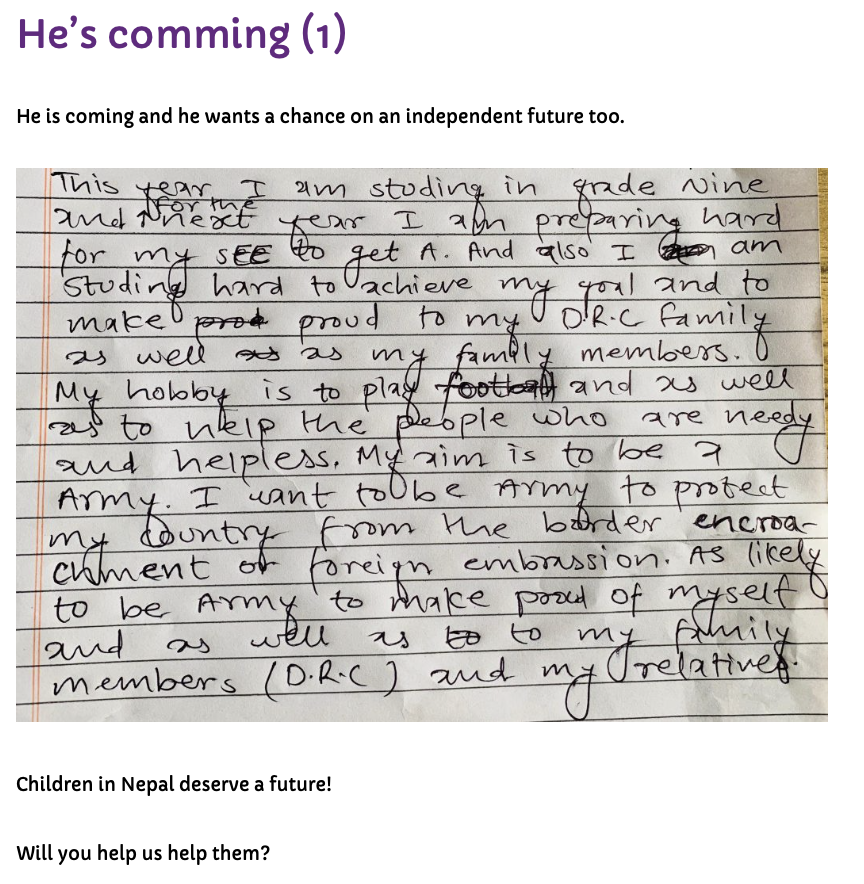 He's comming (1)
He is coming and he wants a chance on an independent future too.
This year I am studing in grade Nine
for the
and next year I am preparing hard
for my SEE to get A. And also I am
Studing hard to achieve my goal and to
make proud to my D.R.C family
as well as my family members.
My hobby is to play football and as well
as to help the people who are needy
and helpless. My aim is to be a
Army. I want to be Army to protect
my country from the border encroa-
chment or foreign embrassion. As likely
to be Army to make proud of myself
and as well as to my family
members (D.R.C) and my relatives.
Children in Nepal deserve a future!
Will you help us help them?